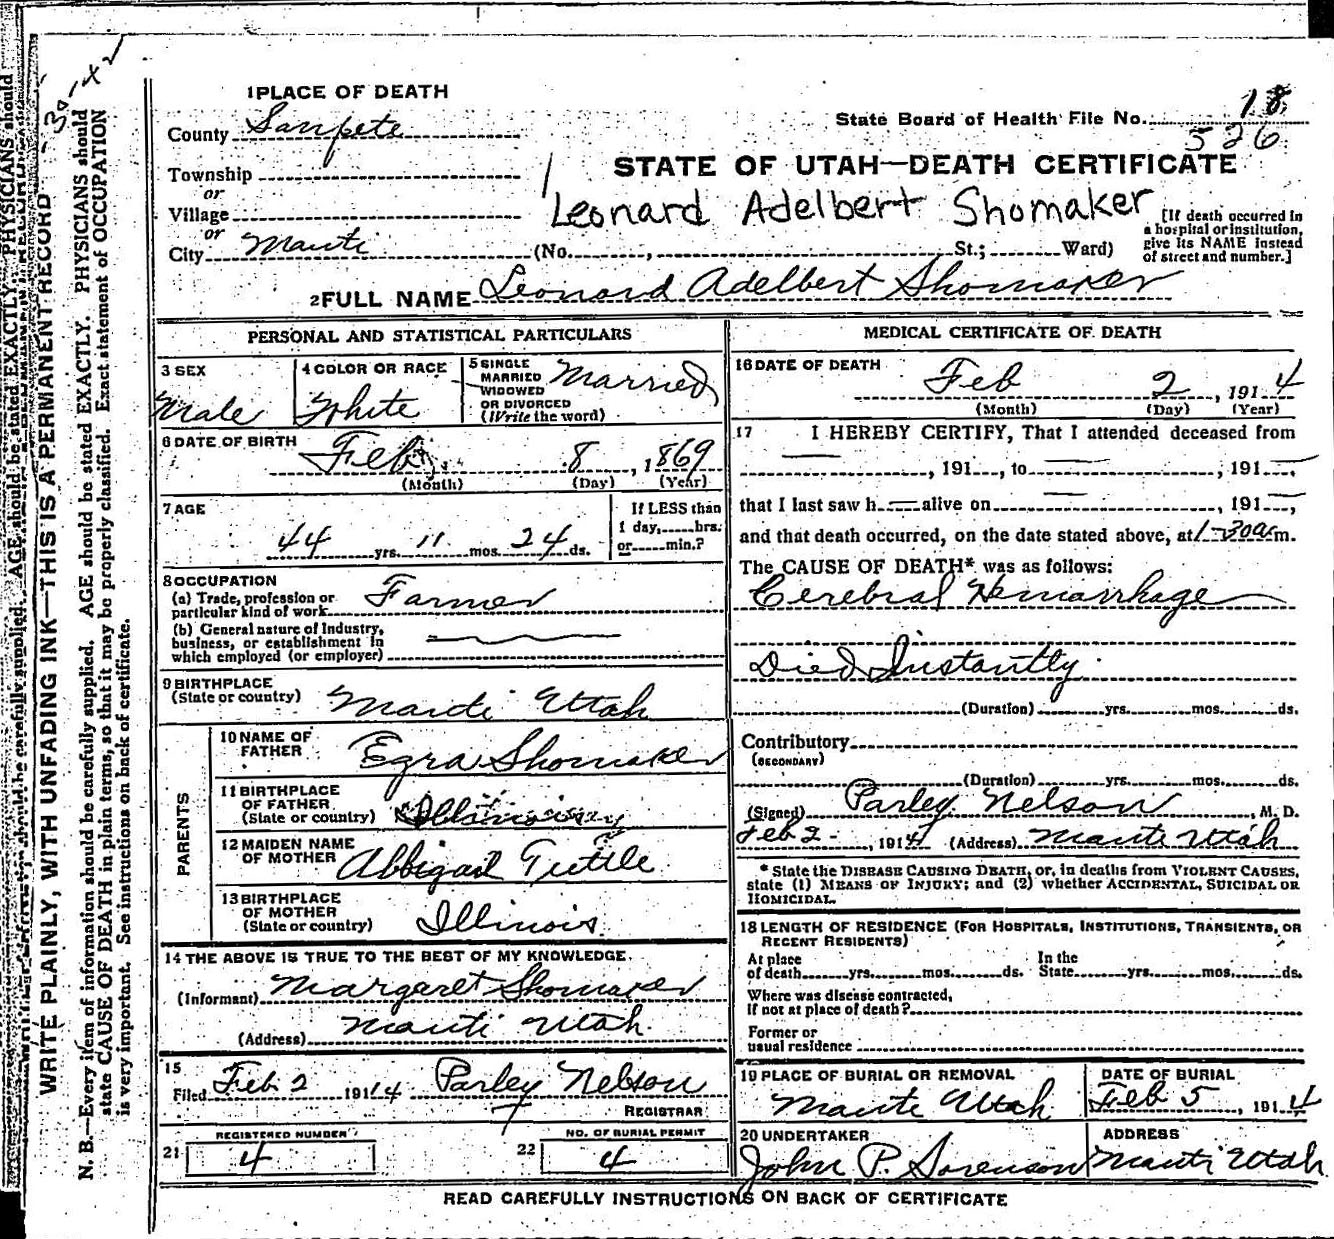 1 PLACE OF DEATH
County Sanpete
Township
or
Village
or
City Manti
State Board of Health File No. 18
526
STATE OF UTAH—DEATH CERTIFICATE
Leonard Adelbert Shomaker
(No. , St.; Ward)
[If death occurred in
a hospital or institution,
give its NAME instead
of street and number.]
2 FULL NAME Leonard Adelbert Shomaker
PERSONAL AND STATISTICAL PARTICULARS
3 SEX
Male
4 COLOR OR RACE
White
5 SINGLE
MARRIED
WIDOWED
OR DIVORCED
(Write the word)
Married
6 DATE OF BIRTH
Feb. 8, 1869
(Month) (Day) (Year)
7 AGE
44 yrs. 11 mos. 24 ds.
If LESS than
1 day, hrs.
or min.?
8 OCCUPATION
(a) Trade, profession or
particular kind of work Farmer
(b) General nature of Industry,
business, or establishment in
which employed (or employer)
9 BIRTHPLACE
(State or country) Manti Utah
PARENTS
10 NAME OF
FATHER Ezra Shomaker
11 BIRTHPLACE
OF FATHER
(State or country)
12 MAIDEN NAME
OF MOTHER Abbigail Tuttle
13 BIRTHPLACE
OF MOTHER
(State or country) Illinois
14 THE ABOVE IS TRUE TO THE BEST OF MY KNOWLEDGE.
(Informant) Margaret Shomaker
(Address) Manti Utah.
15
Filed Feb 2 1914 Parley Nelson
REGISTRAR
21 REGISTERED NUMBER
4
22 NO. OF BURIAL PERMIT
4
MEDICAL CERTIFICATE OF DEATH
16 DATE OF DEATH
Feb 2, 1914
(Month) (Day) (Year)
17 I HEREBY CERTIFY, That I attended deceased from
, 191 , to , 191 ,
that I last saw h alive on , 191 ,
and that death occurred, on the date stated above, at 1-30 a m.
The CAUSE OF DEATH* was as follows:
Cerebral Hemarrhage
Died Instantly.
(Duration) yrs. mos. ds.
Contributory
(SECONDARY)
(Duration) yrs. mos. ds.
(Signed) Parley Nelson, M. D.
Feb 2 - , 1914 (Address) Manti Utah
* State the DISEASE CAUSING DEATH, or, in deaths from VIOLENT CAUSES,
state (1) MEANS OF INJURY; and (2) whether ACCIDENTAL, SUICIDAL OR
HOMICIDAL.
18 LENGTH OF RESIDENCE (FOR HOSPITALS, INSTITUTIONS, TRANSIENTS, OR
RECENT RESIDENTS)
At place
of death yrs. mos. ds.
In the
State yrs. mos. ds.
Where was disease contracted,
If not at place of death?
Former or
usual residence
19 PLACE OF BURIAL OR REMOVAL
Manti Utah
DATE OF BURIAL
Feb 5, 1914
20 UNDERTAKER
John P. Sorenson
ADDRESS
Manti Utah
READ CAREFULLY INSTRUCTIONS ON BACK OF CERTIFICATE
WRITE PLAINLY, WITH UNFADING INK—THIS IS A PERMANENT RECORD
N. B.—Every item of information should be carefully supplied. AGE should be stated EXACTLY. PHYSICIANS should
state CAUSE OF DEATH in plain terms, so that it may be properly classified. Exact statement of OCCUPATION
is very important. See instructions on back of certificate.